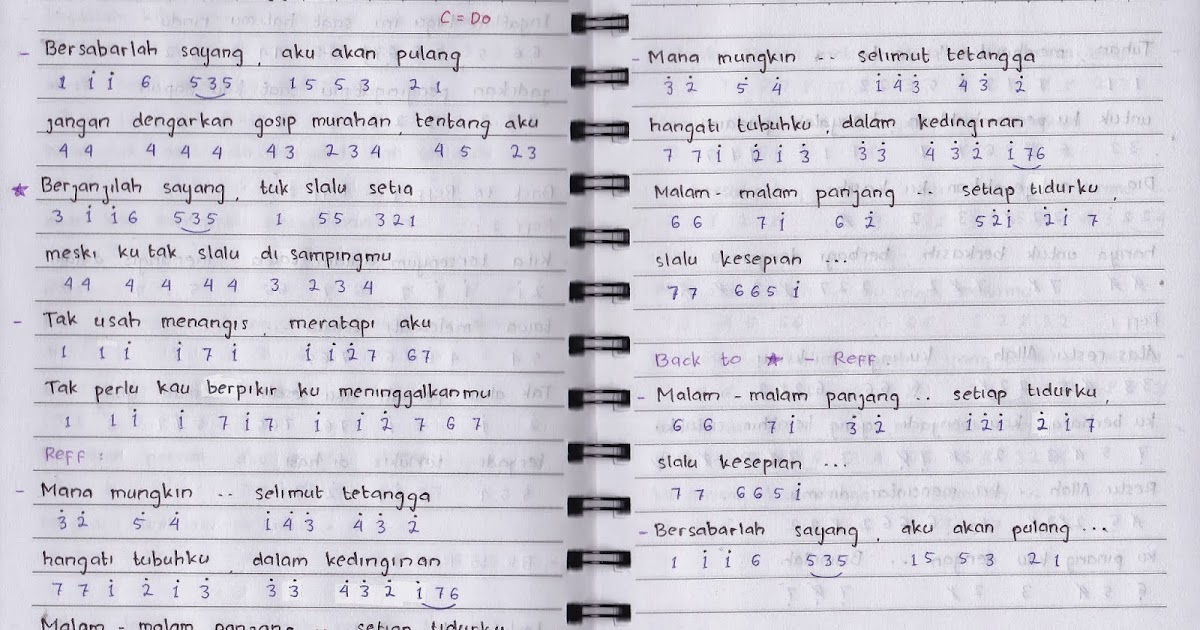 C = Do
- Bersabarlah sayang, aku akan pulang
1 i̇ i̇ 6 5 3 5 1 5 5 3 2 1
jangan dengarkan gosip murahan, tentang aku
4 4 4 4 4 4 3 2 3 4 4 5 2 3
★ Berjanjilah sayang, tuk slalu setia
3 i̇ i̇ 6 5 3 5 1 5 5 3 2 1
meski ku tak slalu di sampingmu
4 4 4 4 4 4 3 2 3 4
- Tak usah menangis, meratapi aku
1 1 i̇ i̇ 7 i̇ i̇ i̇ 2̇ 7 6 7
Tak perlu kau berpikir ku meninggalkanmu
1 1 i̇ i̇ 7 i̇ 7 i̇ i̇ 2̇ 7 6 7
Reff :
- Mana mungkin .. selimut tetangga
3̇ 2̇ 5̇ 4̇ i̇ 4̇ 3̇ 4̇ 3̇ 2̇
hangati tubuhku, dalam kedinginan
7 7 i̇ 2̇ i̇ 3̇ 3̇ 3̇ 4̇ 3̇ 2̇ i̇ 7 6
Malam - malam panjang .. setiap tidurku
- Mana mungkin .. selimut tetangga
3̇ 2̇ 5̇ 4̇ i̇ 4̇ 3̇ 4̇ 3̇ 2̇
hangati tubuhku, dalam kedinginan
7 7 i̇ 2̇ i̇ 3̇ 3̇ 3̇ 4̇ 3̇ 2̇ i̇ 7 6
Malam - malam panjang .. setiap tidurku,
6 6 7 i̇ 6 2̇ 5 2̇ i̇ 2̇ i̇ 7
slalu kesepian ...
7 7 6 6 5 i̇
Back to ★ - Reff.
- Malam - malam panjang .. setiap tidurku,
6 6 7 i̇ 3̇ 2̇ i̇ 2̇ i̇ 2̇ i̇ 7
slalu kesepian ...
7 7 6 6 5 i̇
- Bersabarlah sayang, aku akan pulang ...
1 i̇ i̇ 6 5 3 5 1 5 5 3 2 1